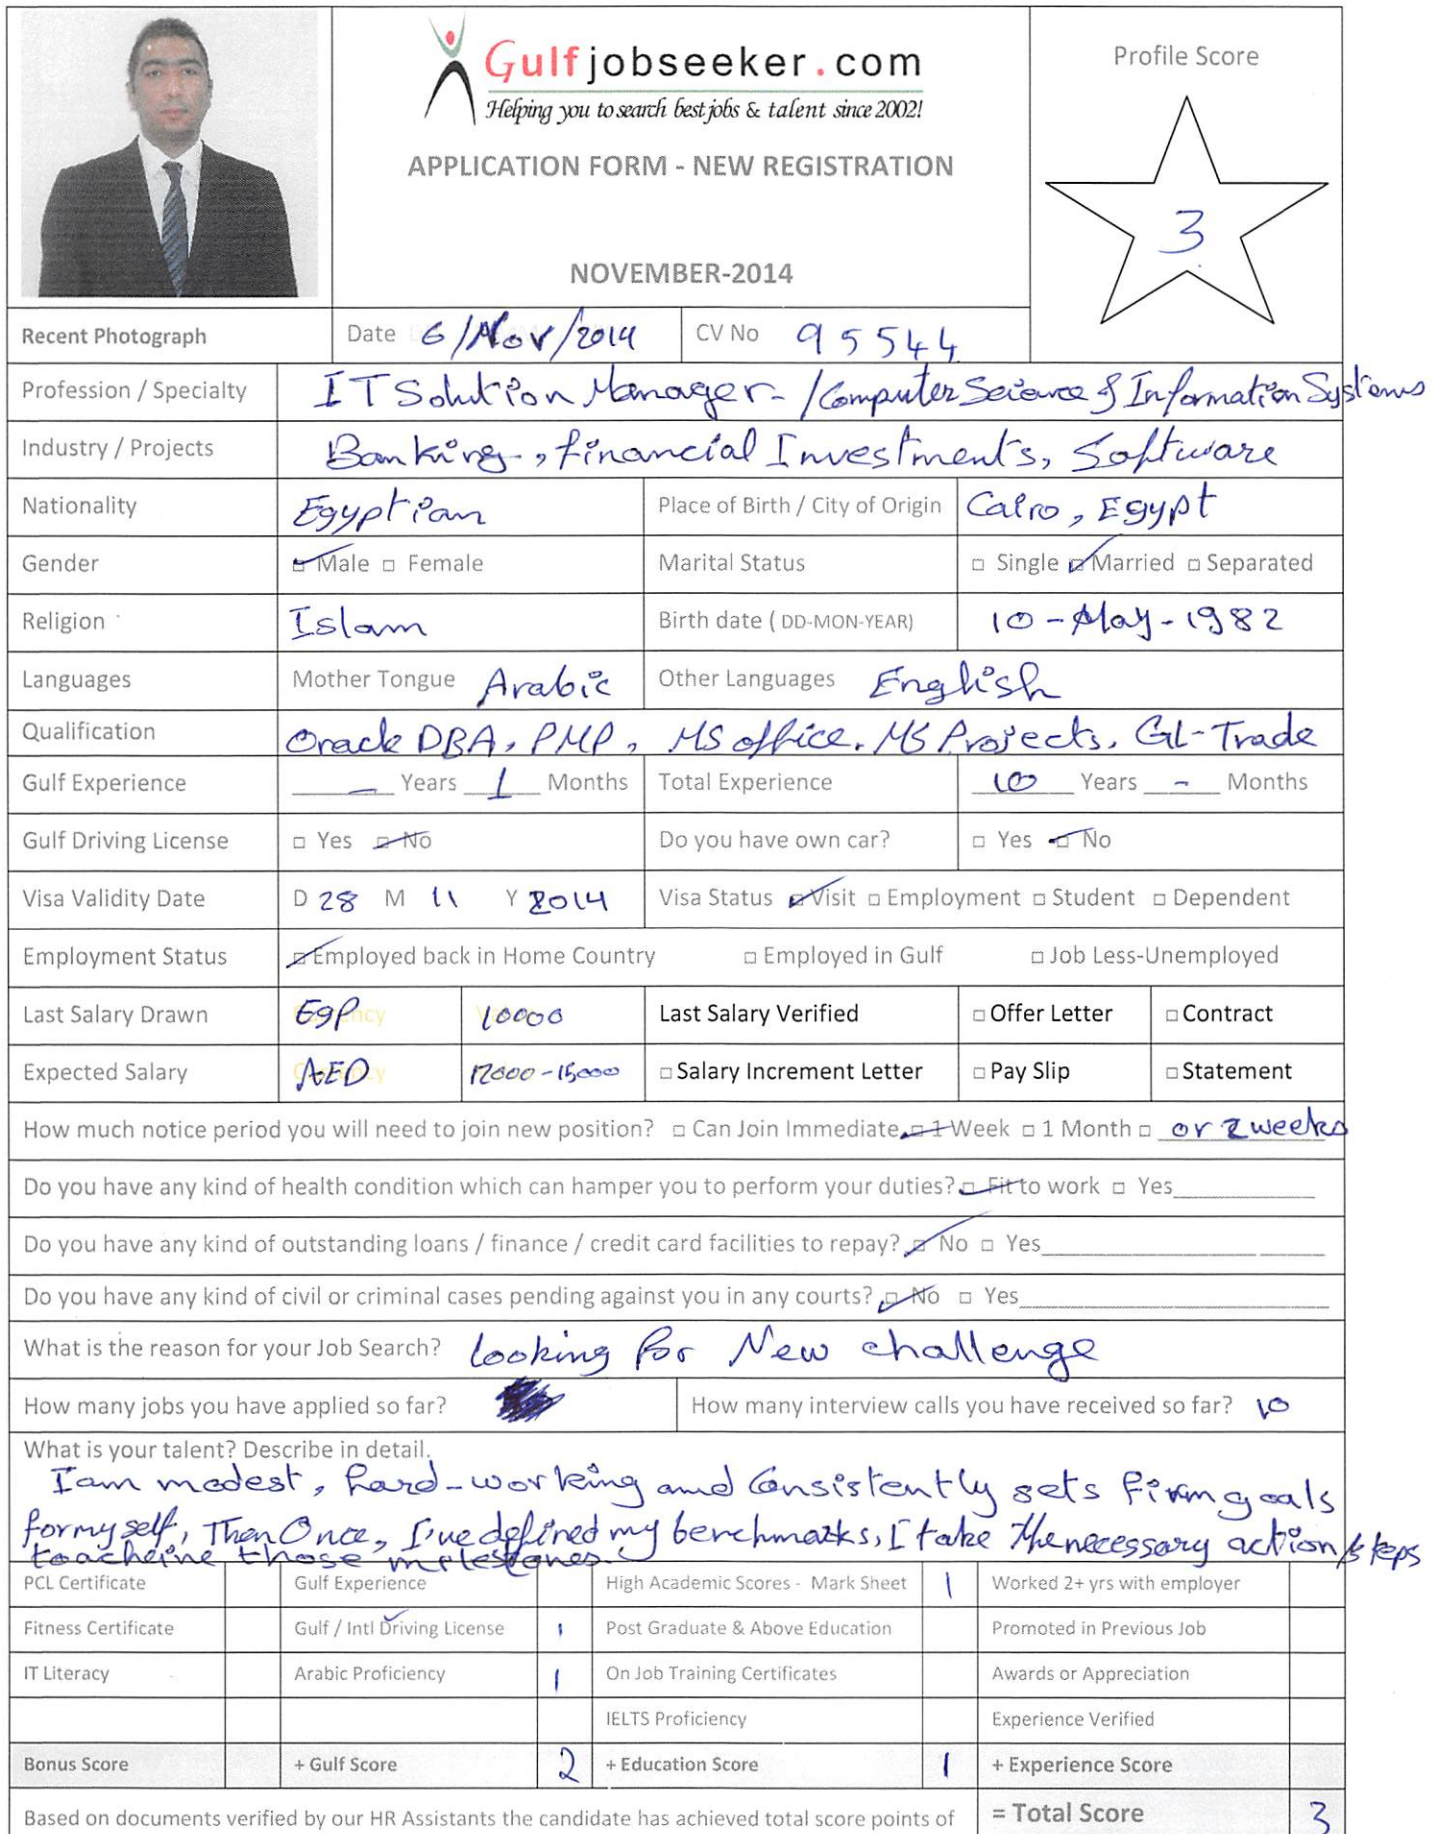 Gulfjobseeker.com
Helping you to search best jobs & talent since 2002!
APPLICATION FORM - NEW REGISTRATION
NOVEMBER-2014
Profile Score
3
Recent Photograph Date 6/Nov/2014 CV No 95544
Profession / Specialty IT Solution Manager - / Computer Science & Information Systems
Industry / Projects Banking, financial Investments, Software
Nationality Egyptian Place of Birth / City of Origin Cairo, Egypt
Gender □ Male □ Female Marital Status □ Single □ Married □ Separated
Religion Islam Birth date ( DD-MON-YEAR) 10-May-1982
Languages Mother Tongue Arabic Other Languages English
Qualification Oracle DBA, PMP, MS office, MS Projects, GL-Trade
Gulf Experience - Years 1 Months Total Experience 10 Years - Months
Gulf Driving License □ Yes □ No Do you have own car? □ Yes □ No
Visa Validity Date D 28 M 11 Y 2014 Visa Status □ Visit □ Employment □ Student □ Dependent
Employment Status □ Employed back in Home Country □ Employed in Gulf □ Job Less-Unemployed
Last Salary Drawn EGP 10000 Last Salary Verified □ Offer Letter □ Contract
Expected Salary AED 12000-15000 □ Salary Increment Letter □ Pay Slip □ Statement
How much notice period you will need to join new position? □ Can Join Immediate □ 1 Week □ 1 Month □ or 2 weeks
Do you have any kind of health condition which can hamper you to perform your duties? □ Fit to work □ Yes
Do you have any kind of outstanding loans / finance / credit card facilities to repay? □ No □ Yes
Do you have any kind of civil or criminal cases pending against you in any courts? □ No □ Yes
What is the reason for your Job Search? looking for New challenge
How many jobs you have applied so far? How many interview calls you have received so far? 10
What is your talent? Describe in detail.
I am modest, hard-working and Consistently sets firm goals
for myself, Then Once, I've defined my benchmarks, I take the necessary action/steps
toacheive those milestones.
PCL Certificate Gulf Experience High Academic Scores - Mark Sheet 1 Worked 2+ yrs with employer
Fitness Certificate Gulf / Intl Driving License 1 Post Graduate & Above Education Promoted in Previous Job
IT Literacy Arabic Proficiency 1 On Job Training Certificates Awards or Appreciation
IELTS Proficiency Experience Verified
Bonus Score + Gulf Score 2 + Education Score 1 + Experience Score
Based on documents verified by our HR Assistants the candidate has achieved total score points of = Total Score 3